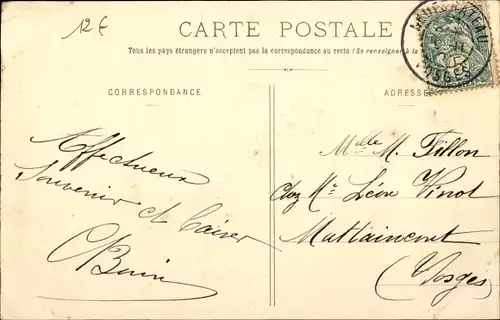 12€
CARTE POSTALE
Tous les pays étrangers n'acceptent pas la correspondance au recto (Se renseigner à la
NEUFCHATEAU
VOSGES
CORRESPONDANCE
ADRESSE
Affectueux
Souvenir et baiser
Melle M. Tillon
Chez Mr Léon Vinot
Mattaincourt
(Vosges)